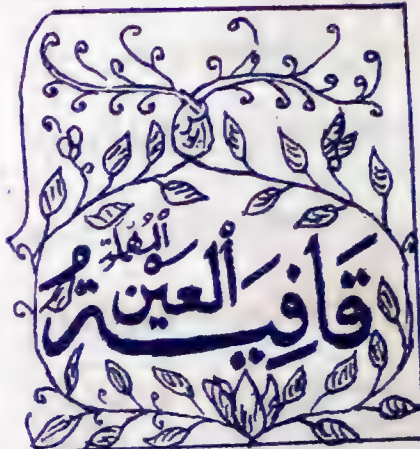 قَافِيَةُ العين المُهملة